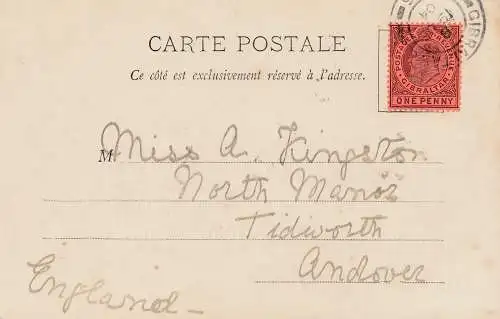 CARTE POSTALE
Ce côté est exclusivement réservé à l'adresse.
POSTAGE & REVENUE
GIBRALTAR
ONE PENNY
M Miss A. Kingston
North Manor
Tidworth
Andover
England